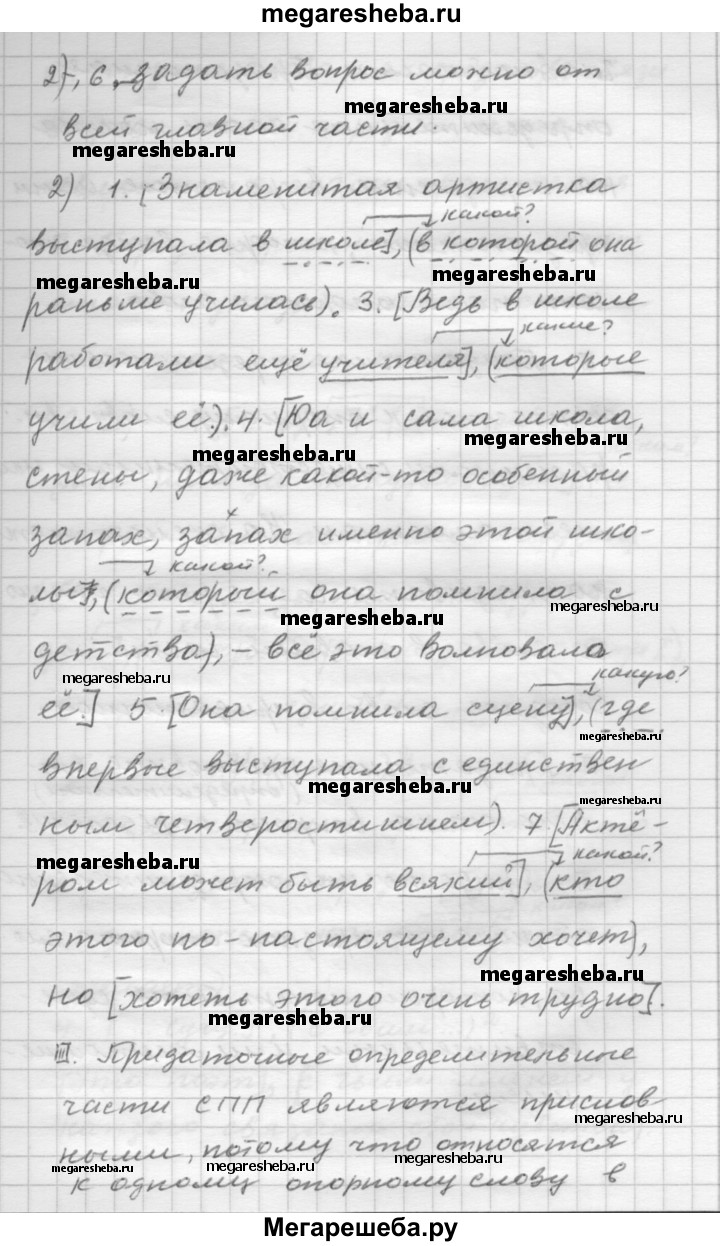 megaresheba.ru
2)-, 6. задать вопрос можно от
megaresheba.ru
всей главной части.
megaresheba.ru
2) 1. [Знаменитая артистка
какой?
выступала в школе], (в которой она
megaresheba.ru
megaresheba.ru
раньше училась). 3. [Ведь в школе
какие?
работали ещё учителя], (которые
megaresheba.ru
учили её). 4. [Да и сама школа,
megaresheba.ru
megaresheba.ru
стены, даже какой-то особенный
запах, запах именно этой шко-
какой?
лы], (который она помнила с
megaresheba.ru
megaresheba.ru
детства), - всё это волновало
megaresheba.ru
какую?
её.] 5. [Она помнила сцену], (где
megaresheba.ru
впервые выступала с единствен
megaresheba.ru
megaresheba.ru
ным четверостишием). 7. [Актё-
megaresheba.ru
какой?
ром может быть всякий], (кто
этого по-настоящему хочет),
megaresheba.ru
но [хотеть этого очень трудно].
megaresheba.ru
III. Придаточные определительные
части СПП являются прислов
megaresheba.ru
ными, потому что относятся
megaresheba.ru
megaresheba.ru
megaresheba.ru
к одному опорному слову в
Мегарешеба.ру